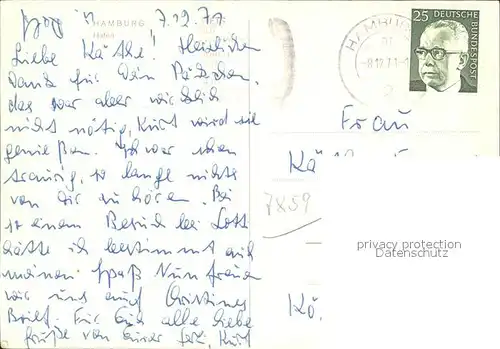 7.12.71
HAMBURG
Hafen
Liebe Käthe! Herzlichen
Dank für Dein Päckchen,
das war aber wirklich
nicht nötig, Kurt wird sie
genießen. Ich war schon
traurig, so lange nichts
von Dir zu hören. Bei
so einem Besuch bei Lotti
hätte ich bestimmt auch
meinen Spaß Nun freuen
wir uns auf Christines
Brief. Für Euch alle liebe
Grüße von Eurer Kurt
25 DEUTSCHE
BUNDESPOST
HAMBURG
-8.12.71-
2
Frau
Kä
7X59
privacy protection
Datenschutz
Kö